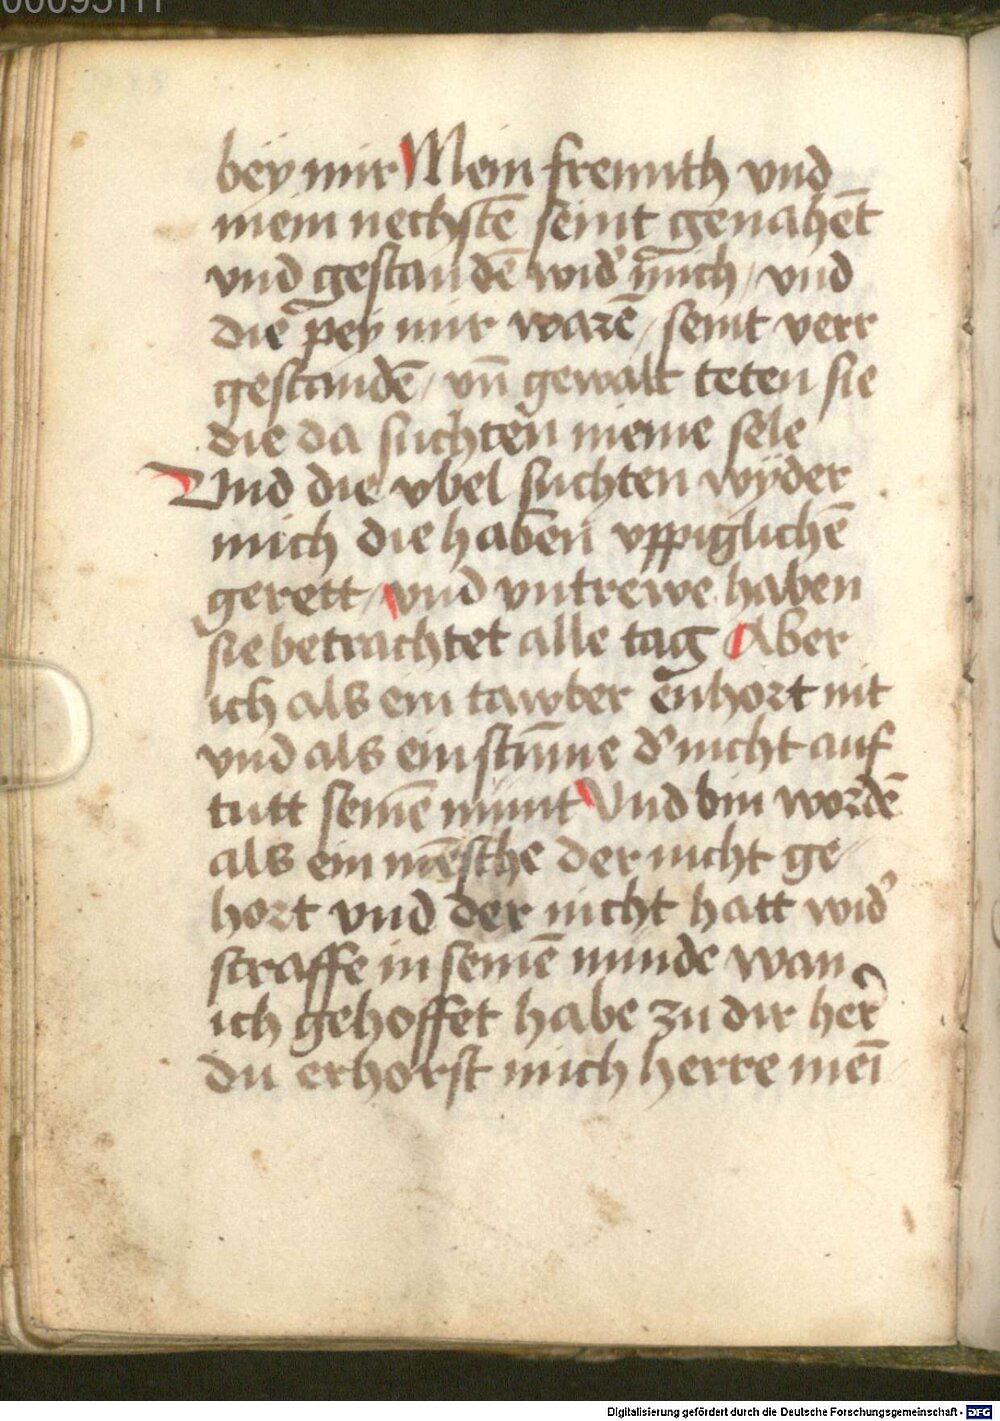 bey mir Mein freunth vnd
mein nechstē seint genahēt
vnd gestandē wid' mich / vnd
die pey mir warē / seint verr
gestandē / vn̄ gewalt teten sie
die da suchten meine sele
Vnd die vbel suchten wyder
mich die haben vppiglichē
gerett / vnd vntrewe haben
sie betrachtet alle tag Aber
ich als ein tawber enhort nit
vnd als ein stūme d' nicht auf
tutt seinē munt Vnd bin wordē
als ein mēsche der nicht ge
hort vnd der nicht hatt wid'
straffe in seinē munde wan
ich gehoffet habe zu dir her'
du erhorst mich herre mei͂
Digitalisierung gefördert durch die Deutsche Forschungsgemeinschaft - DFG